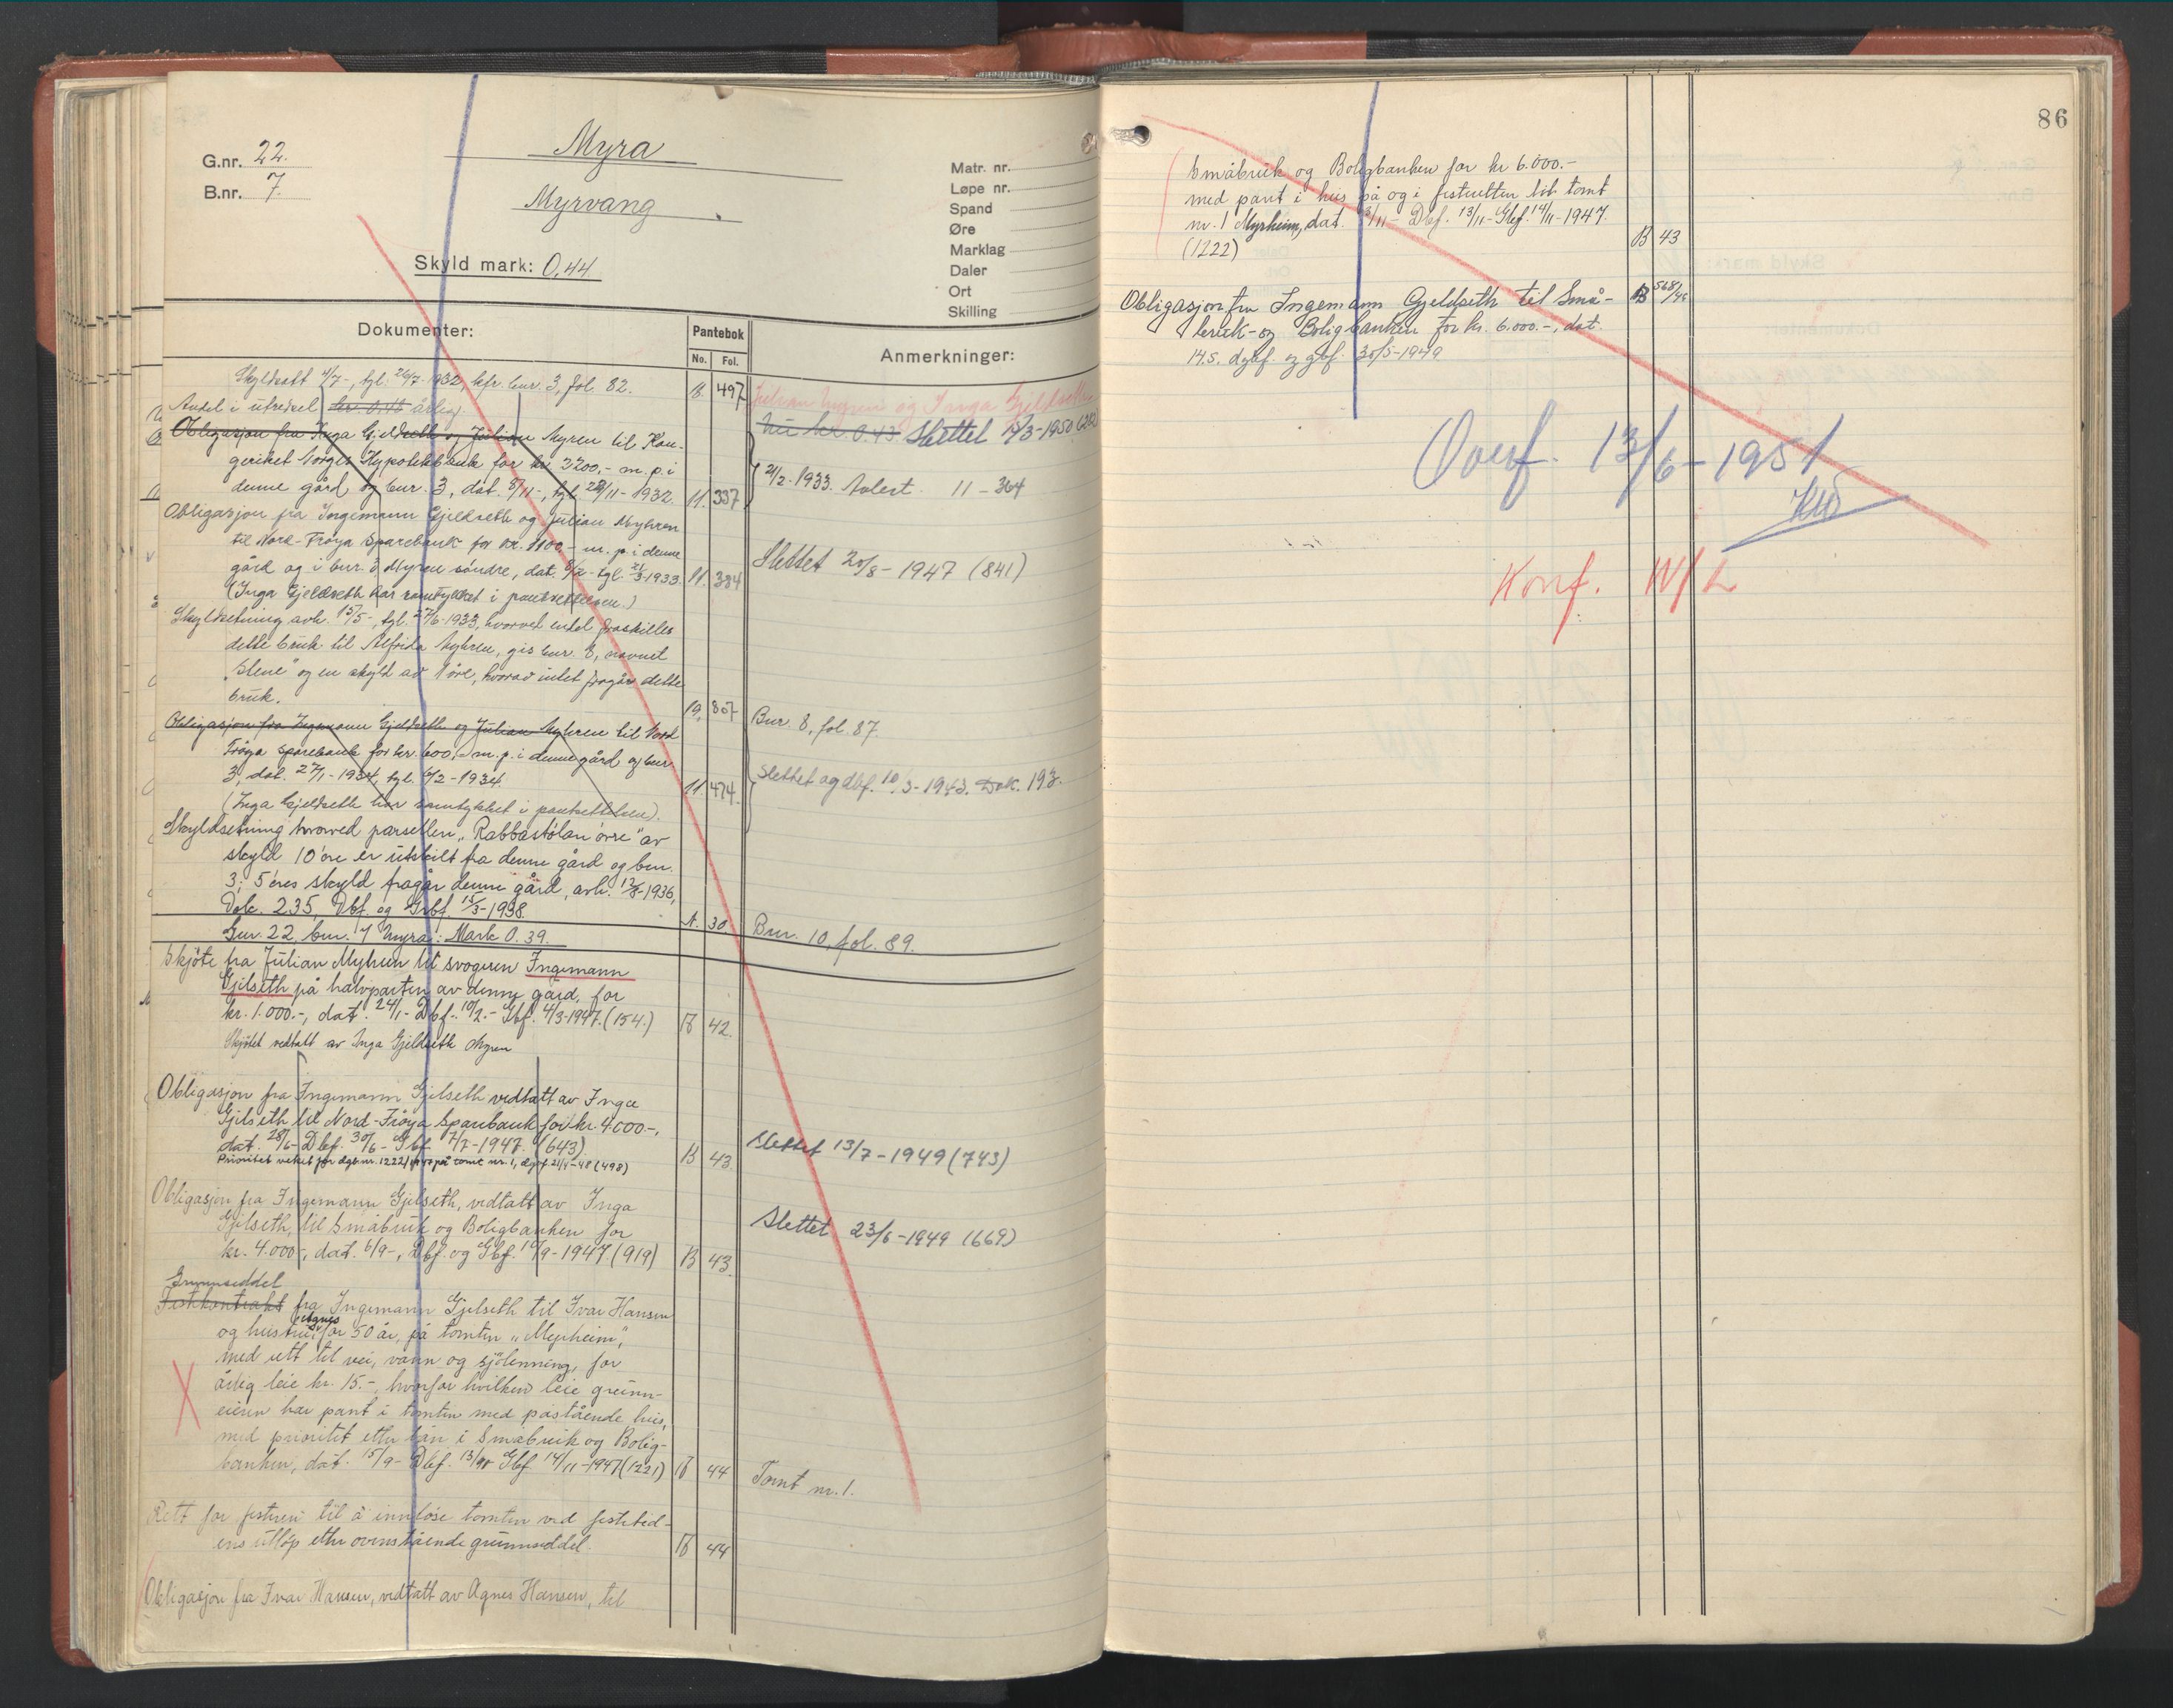 G.nr. 22.
B.nr. 7.
Myra
Myrvang
Skyld mark: 0,44.
Matr. nr.
Løpe nr.
Spand
Øre
Marklag
Daler
Ort
Skilling
Dokumenter:
Pantebok
No. Fol.
Anmerkninger:
Skyldsatt 4/7-, tgl. 26/7-1932, kfr. bnr. 3, fol. 82. B. 497
Julian Myren og Inga Gjeldseth
Andel i utredsel kr. 0.48 årlig.
nu kr. 0.43 Slettet 15/3-1950
Obligasjon fra Inga Gjeldseth og Julian Myren til Kon-
geriket Norges Hypotekbank for kr 3200,- m. p. i
denne gård og bnr. 3, dat. 8/11-, tgl. 28/11-1932. 11. 337
21/2-1933. Avlest. 11-364
Obligasjon fra Ingemann Gjeldseth og Julian Myhren
til Nord-Frøya Sparebank for kr. 1100,- m. p. i denne
gård og i bnr. 3 Myren søndre, dat. 8/2- tgl. 21/3-1933. 11. 384
(Inga Gjeldseth har samtykket i pantsettelsen.)
Slettet 20/8-1947 (841)
Skyldsetning avh. 15/5-, tgl. 27/6-1933, hvorved endel fraskilles
dette bruk til Alfrida Myhren, gis bnr. 8, navnet
"Stene" og en skyld av 1 øre, hvorav intet fragår dette
bruk. 19. 807
Bnr. 8, fol. 87.
Obligasjon fra Ingemann Gjeldseth og Julian Myhren til Nord
Frøya Sparebank for kr. 600,- m. p. i denne gård og bnr
3, dat. 27/1-1934, tgl. 6/2-1934. 11. 474.
(Inga Gjeldseth har samtykket i pantsettelsen).
Slettet og dbf. 10/3-1943. Dok. 193.
Skyldsetning hvorved parsellen "Rabbastølan øvre" av
skyld 10 øre er utskilt fra denne gård og bnr.
3; 5 øres skyld fragår denne gård, avh. 12/8-1936,
Dok. 235, Dbf. og Grbf. 15/3-1938. A. 30.
Bnr. 10, fol. 89.
Gnr. 22, bnr. 7 Myra: Mark 0.39.
Skjøte fra Julian Myhren til svogeren Ingemann
Gjilseth på halvparten av denne gård, for
kr. 1.000.-, dat. 24/1- Dbf. 10/2.- Gbf. 4/3-1947. (154.) B 42.
Skjøtet vedtatt av Inga Gjeldseth Myren
Obligasjon fra Ingemann Gjilseth vedtatt av Inga
Gjilseth til Nord-Frøya Sparebank for kr. 4000.-,
dat. 28/6- Dbf. 30/6- Gbf. 7/7-1947. (643) B 43.
Prioritet veket for dgb.nr. 1222/1947 på tomt nr. 1, dgbf. 21/4-48 (498)
Slettet 13/7-1949 (743)
Obligasjon fra Ingemann Gjilseth, vedtatt av Inga
Gjilseth, til Småbruk og Boligbanken for
kr. 4.000.-, dat. 6/9-, Dbf. og Gbf. 10/9-1947. (919) B 43.
Slettet 23/6-1949 (669)
Grunnseddel
Festkontrakt fra Ingemann Gjelseth til Ivar Hansen
og hustru Agnes, for 50 år, på tomten "Myrheim",
med rett til vei, vann og sjølenning, for
årlig leie kr. 15.-, hvorfor hvilken leie grunn-
eieren har pant i tomten med påstående hus,
med prioritet etter lån i Småbruk og Bolig-
banken, dat. 15/9- Dbf. 13/11 Gbf 14/11-1947 (1221) B 44
Tomt nr. 1.
Rett for festeren til å innløse tomten ved festetid-
ens utløp etter ovenstående grunnseddel. B 44
Obligasjon fra Ivar Hansen, vedtatt av Agnes Hansen, til
86
Småbruk og Boligbanken for kr 6.000.-
med pant i hus på og i festeretten til tomt
nr. 1 Myrheim, dat. 3/11- Dbf. 13/11- Gbf. 14/11-1947.
(1222) B 43
Obligasjon fra Ingemann Gjeldseth til Små-
bruk- og Boligbanken for kr. 6.000.-, dat.
14.5. dgbf. og gbf. 30/5-1949 B 568/49
Overf. 13/6-1951
Konf.